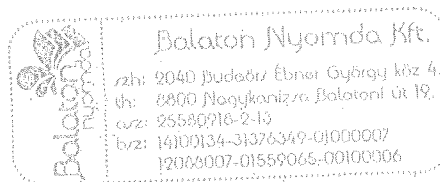 Balaton
nyomda
Balaton Nyomda Kft.
szh: 2040 Budaörs Ébner György köz 4.
th: 8800 Nagykanizsa Balatoni út 19.
asz: 25580918-2-13
bsz: 14100134-31376349-01000007
12088007-01559065-00100006